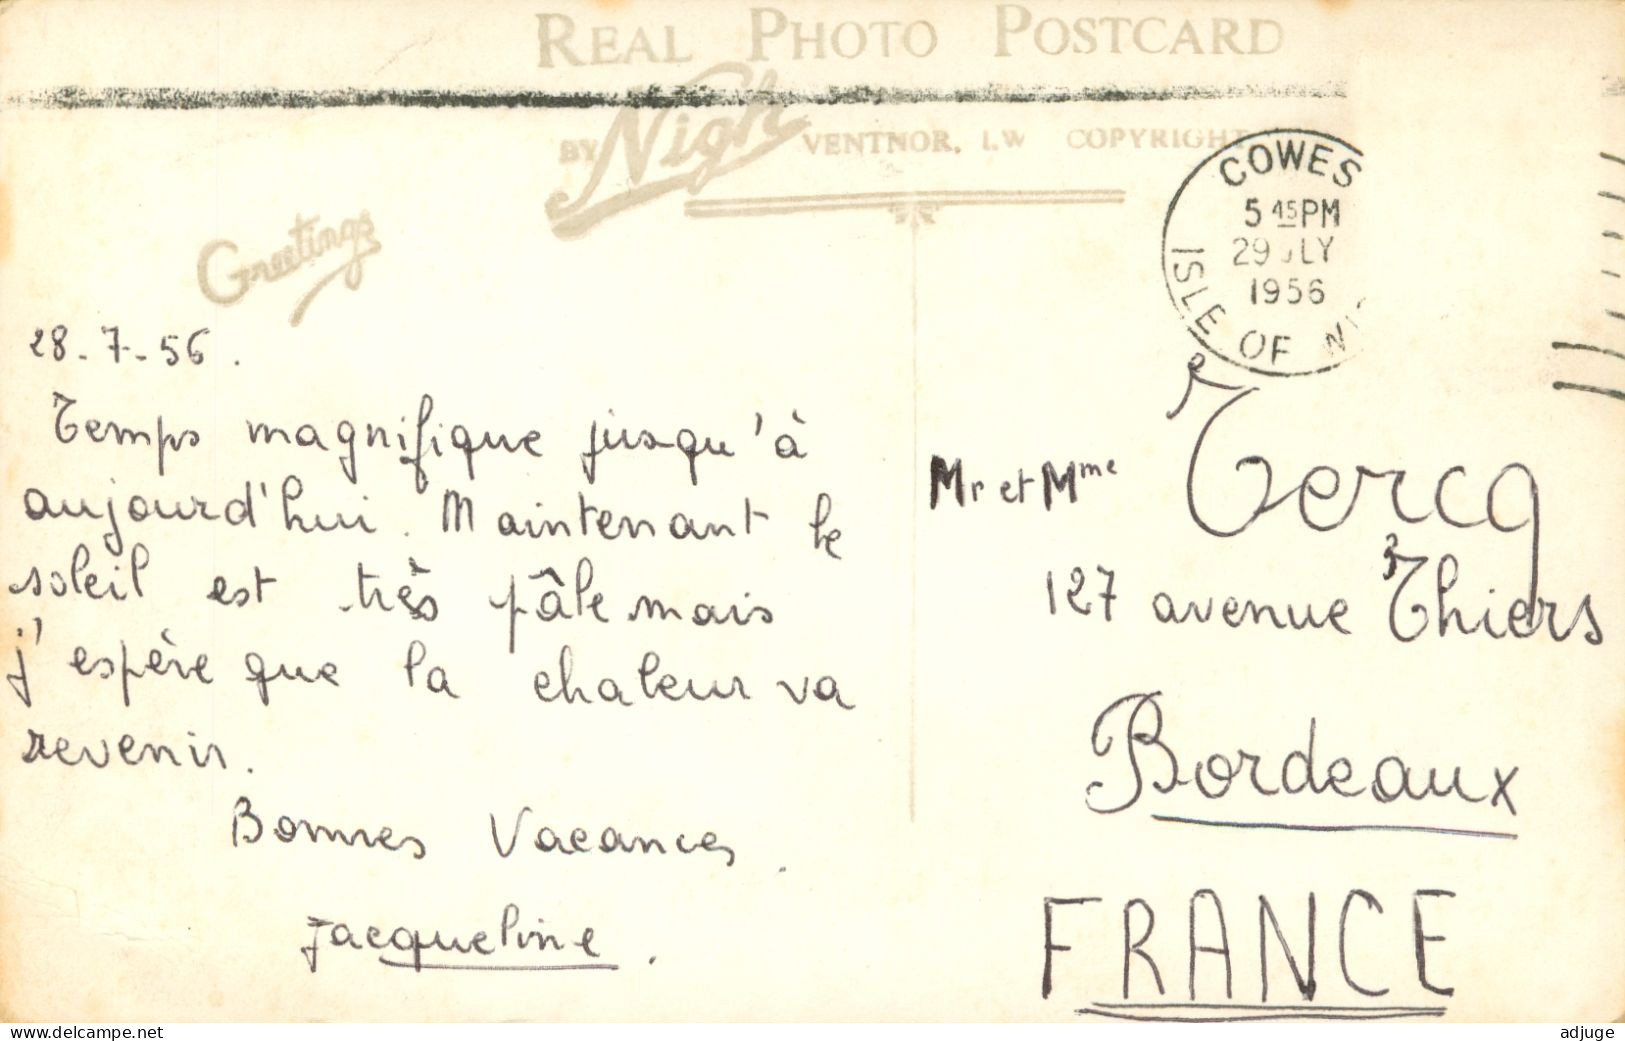 REAL PHOTO POSTCARD
BY Nigh VENTNOR, I.W COPYRIGHT
Greetings
COWES
5 45 PM
29 JLY
1956
ISLE OF
28-7-56.
Temps magnifique jusqu'à
aujourd'hui. Maintenant le
soleil est très pâle mais
j'espère que la chaleur va
revenir.
Bonnes Vacances.
Jacqueline.
Mr et Mme Tercq
127 avenue Thiers
Bordeaux
FRANCE
www.delcampe.net
adjuge